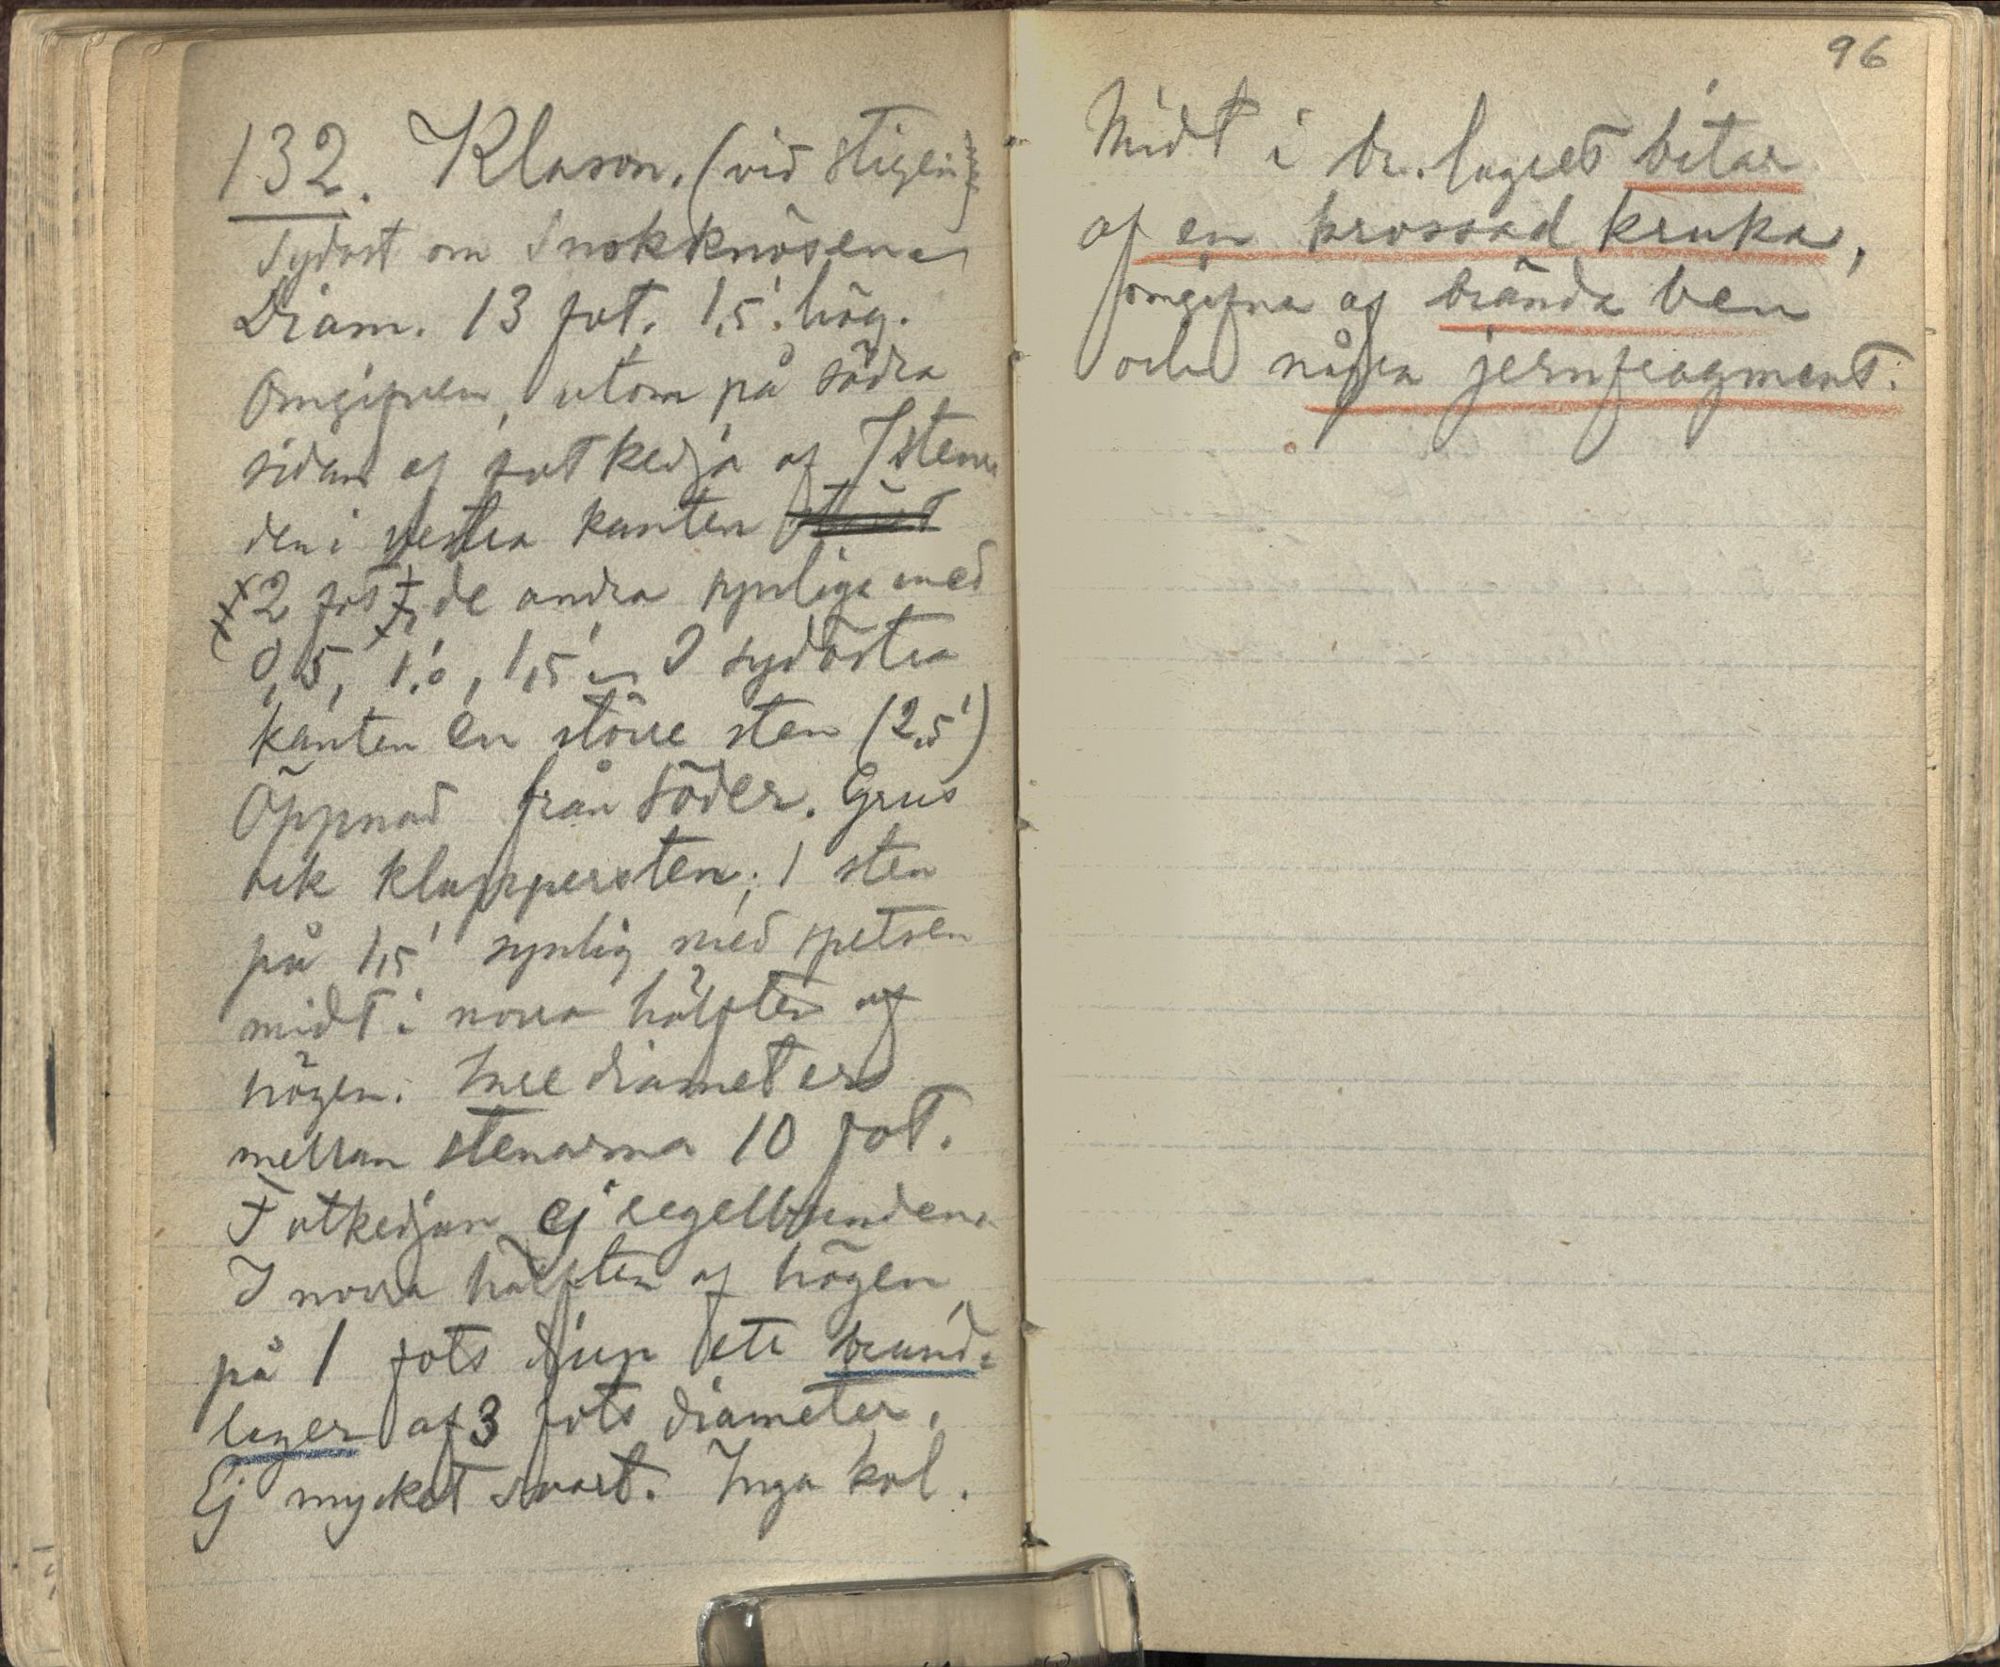 132. Klason. (vid stigen)
Sydost om Snokknösen
Diam. 13 fot. 1,5' hög.
Omgifven, utom på södra
sidan af fotkedja af 7 stenar
den i vestra kanten
2 fot, de andra synliga med
0,5, 1,0, 1,5' – I sydöstra
kanten en större sten (2,5')
Öppnad från söder. Grus
och klappersten; 1 sten
på 1,5' synlig med spetsen
midt i norra hälften af
högen. Inre diameter
mellan stenarna 10 fot.
Fotkedjan ej regelbunden.
I norra hälften af högen
på 1 fots djup ett brand-
lager af 3 fots diameter.
Ej mycket svart. Inga kol.
96
Midt i br. lagret bitar
af en krossad kruka,
omgifna af brända ben
och några jernfragment.